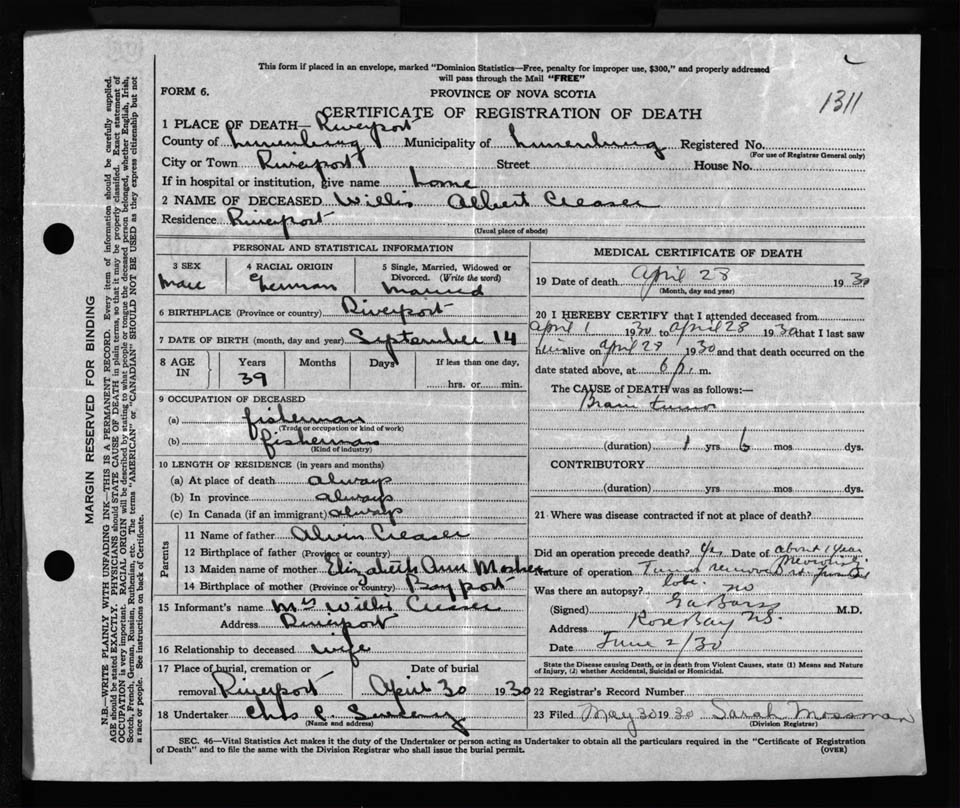 This form if placed in an envelope, marked "Dominion Statistics—Free, penalty for improper use, $300," and properly addressed
will pass through the Mail "FREE"
FORM 6.
PROVINCE OF NOVA SCOTIA
1311
CERTIFICATE OF REGISTRATION OF DEATH
1 PLACE OF DEATH— Riverport
County of Lunenburg Municipality of Lunenburg Registered No.
(For use of Registrar General only)
City or Town Riverport Street House No.
If in hospital or institution, give name home
2 NAME OF DECEASED Willis Albert Creaser
Residence Riverport
(Usual place of abode)
PERSONAL AND STATISTICAL INFORMATION
3 SEX Male
4 RACIAL ORIGIN German
5 Single, Married, Widowed or
Divorced. (Write the word)
Married
6 BIRTHPLACE (Province or country) Riverport
7 DATE OF BIRTH (month, day and year) September 14
8 AGE IN Years 39 Months Days If less than one day,
hrs. or min.
9 OCCUPATION OF DECEASED
(a) fisherman
(Trade or occupation or kind of work)
(b) fisherman
(Kind of industry)
10 LENGTH OF RESIDENCE (in years and months)
(a) At place of death always
(b) In province always
(c) In Canada (if an immigrant) always
Parents
11 Name of father Alvin Creaser
12 Birthplace of father (Province or country)
13 Maiden name of mother Elizabeth Ann Mosher
14 Birthplace of mother (Province or country) Bayport
15 Informant's name Mrs Willis Creaser
Address Riverport
16 Relationship to deceased wife
17 Place of burial, cremation or Date of burial
removal Riverport April 30 1930
18 Undertaker Chas C. Sweeny
(Name and address)
MEDICAL CERTIFICATE OF DEATH
19 Date of death April 28 1930
(Month, day and year)
20 I HEREBY CERTIFY that I attended deceased from
April 1 1930 to April 28 1930 that I last saw
him alive on April 28 1930 and that death occurred on the
date stated above, at 6 p. m.
The CAUSE of DEATH was as follows:—
Brain tumor
(duration) 1 yrs 6 mos dys.
CONTRIBUTORY
(duration) yrs mos dys.
21 Where was disease contracted if not at place of death?
Did an operation precede death? yes Date of about 1 year
previously
Nature of operation Tumor removed
lobe.
Was there an autopsy? no
(Signed) M.D.
Address Rose Bay NS.
Date June 2/30
State the Disease causing Death, or in death from Violent Causes, state (1) Means and Nature
of Injury, (2) whether Accidental, Suicidal or Homicidal.
22 Registrar's Record Number
23 Filed May 30 1930 Sarah Mossman
(Division Registrar)
SEC. 46—Vital Statistics Act makes it the duty of the Undertaker or person acting as Undertaker to obtain all the particulars required in the "Certificate of Registration
of Death" and to file the same with the Division Registrar who shall issue the burial permit.
(OVER)
MARGIN RESERVED FOR BINDING
N.B.—WRITE PLAINLY WITH UNFADING INK—THIS IS A PERMANENT RECORD. Every item of information should be carefully supplied.
AGE should be stated EXACTLY. PHYSICIANS should STATE CAUSE OF DEATH in plain terms, so that it may be properly classified. Exact statement of
OCCUPATION is very important. RACIAL ORIGIN will be described by stating to what people or tongue the deceased person belonged, whether English, Irish,
Scotch, French, German, Russian, Ruthenian, etc. The terms "AMERICAN" or "CANADIAN" SHOULD NOT BE USED as they express citizenship but not
a race or people. See instructions on back of Certificate.